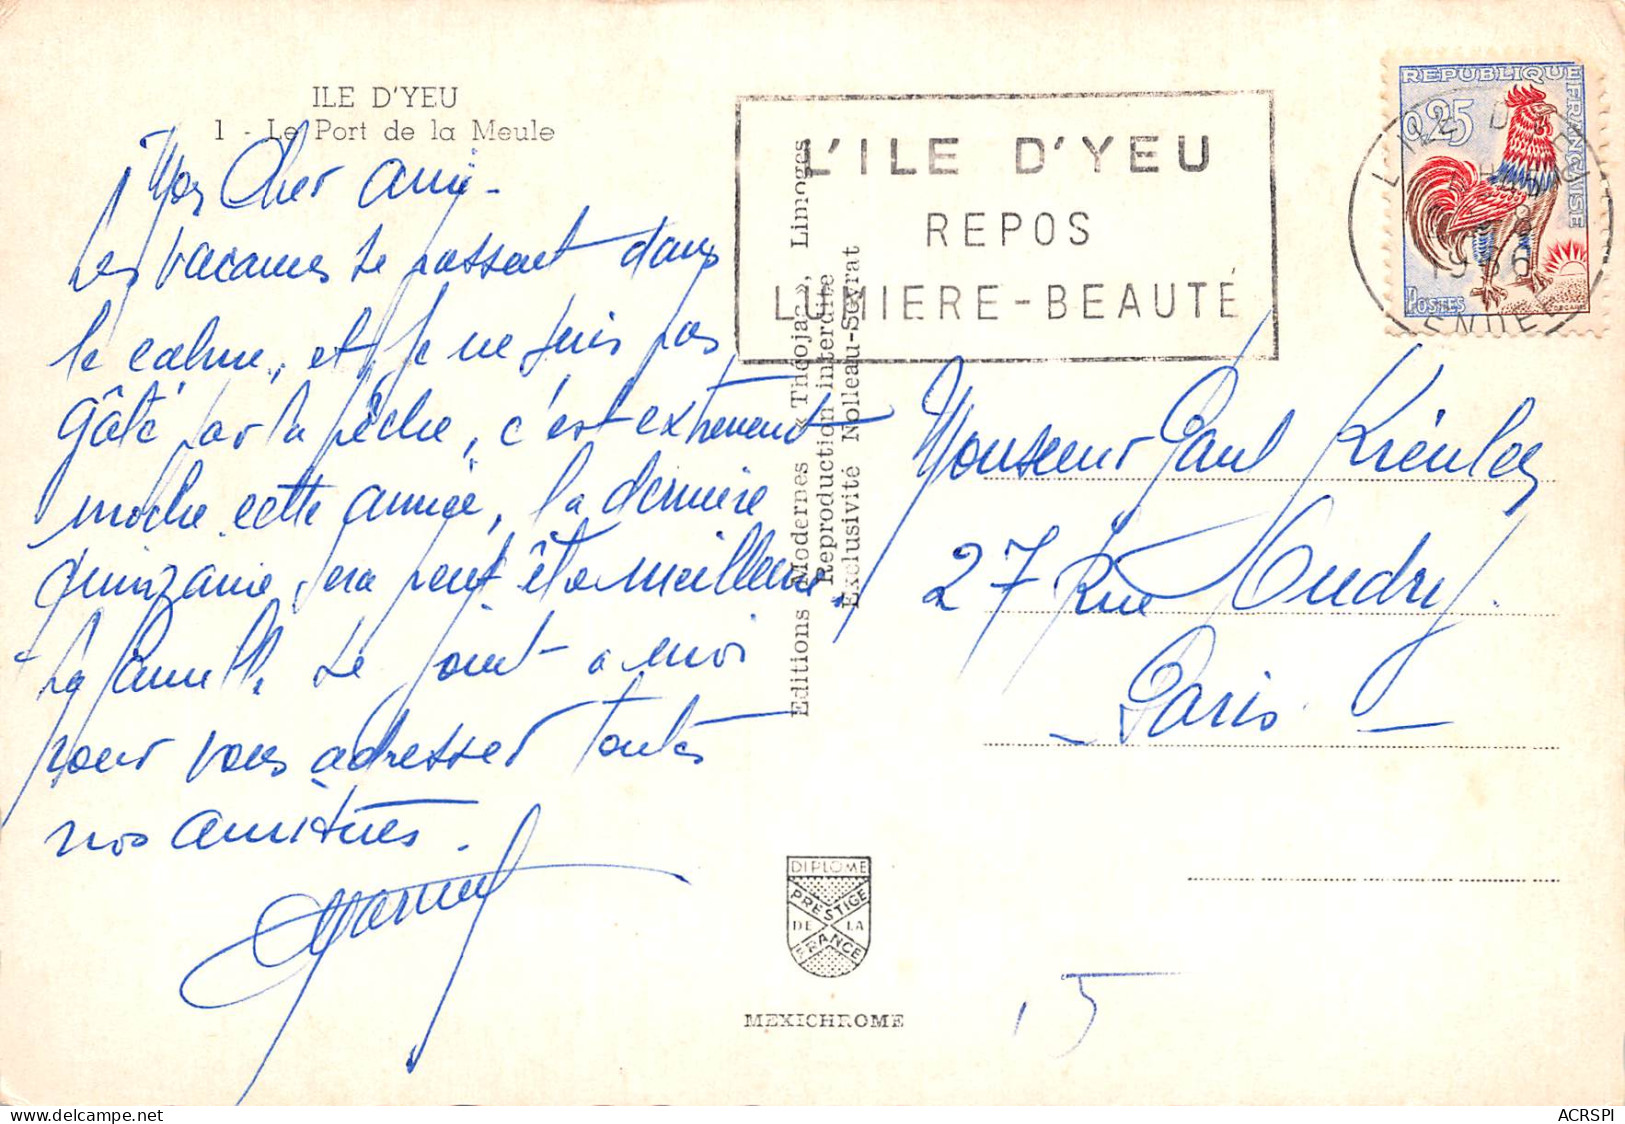 ILE D'YEU
1 - Le Port de la Meule
Mon Cher ami -
Les vacances se passent dans
le calme, et je ne suis pas
gâté par la pêche, c'est extrement
moche cette année, la dernière
quinzaine sera peut être meilleure.
La famille se joint à moi
pour vous adresser toutes
nos amitiés.
Editions Modernes « Théojac », Limoges
Reproduction interdite
Exclusivité Nolleau-Seyrat
L'ILE D'YEU
REPOS
LUMIERE-BEAUTÉ
REPUBLIQUE FRANÇAISE
0,25
POSTES
L'ILE D'YEU
VENDEE
Monsieur Paul
27 Rue Oudry
- Paris -
15
DIPLOME
PRESTIGE
DE LA
FRANCE
MEXICHROME
www.delcampe.net
ACRSPI